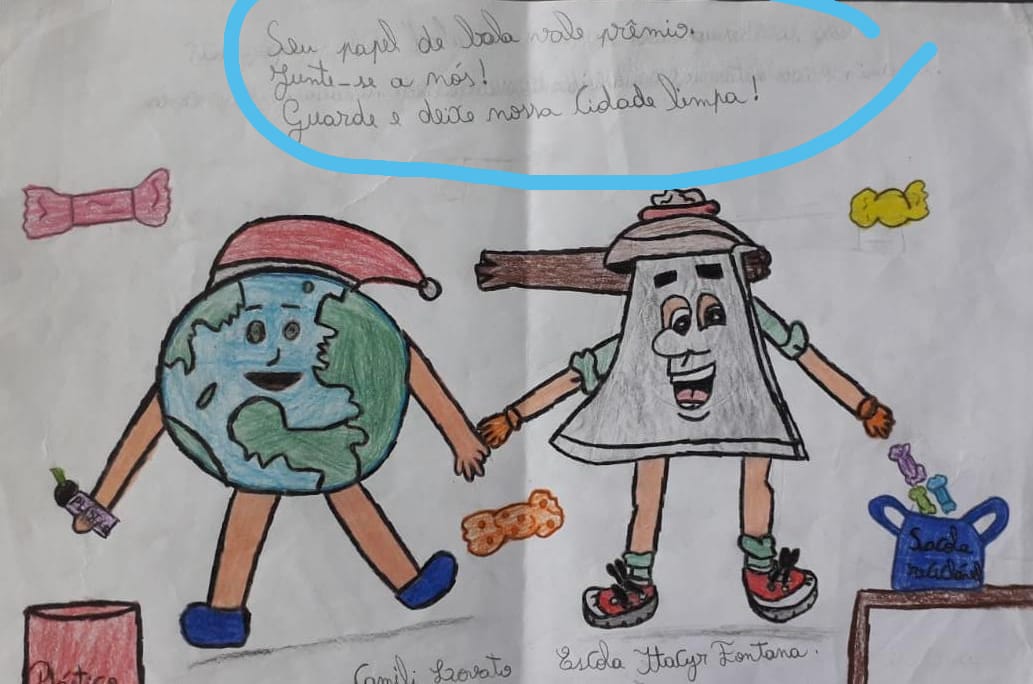 Seu papel de bala vale prêmio.
Junte-se a nós!
Guarde e deixe nossa Cidade limpa!
Sacola
reciclável
Plástico
Camili Lovato
Escola Itacyr Fontana.